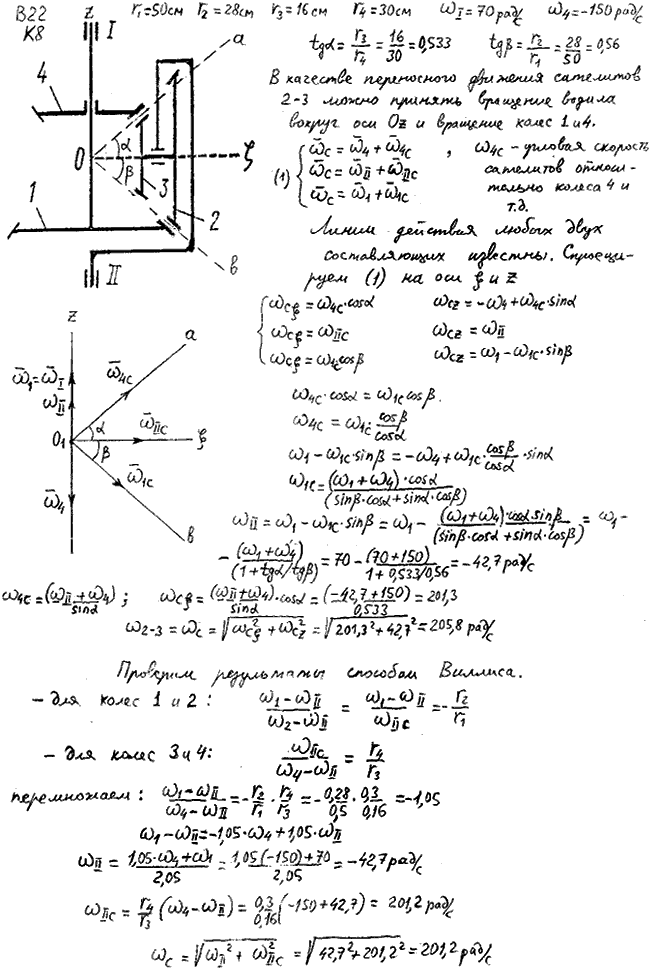 B22 r₁=50см r₂=28см r₃=16см r₄=30см ω_I=70рад/с ω₄=-150рад/с
К8
tgα = r₃/r₄ = 16/30 = 0,533 tgβ = r₂/r₁ = 28/50 = 0,56
В качестве переносного движения сателитов
2-3 можно принять вращение водила
вокруг оси Oz и вращение колес 1 и 4.
z I a
4
O α β ζ
3
1 2
II в
(1) { ω̄c = ω̄₄ + ω̄₄c , ω₄c - угловая скорость
ω̄c = ω̄_II + ω̄_IIc сателитов относи-
ω̄c = ω̄₁ + ω̄₁c тельно колеса 4 и
т.д.
Линии действия любых двух
составляющих известны. Спроеци-
руем (1) на оси ξ и z
{ ωcξ = ω₄c·cosα ωcz = -ω₄ + ω₄c·sinα
ωcξ = ω_IIc ωcz = ω_II
ωcξ = ω₁c cosβ ωcz = ω₁ - ω₁c·sinβ
z a
ω̄₁=ω̄_I ω̄₄c
ω̄_II
O₁ α β ω̄_IIc ξ
ω̄₁c
ω̄₄
в
ω₄c·cosα = ω₁c cosβ.
ω₄c = ω₁c·cosβ/cosα
ω₁ - ω₁c·sinβ = -ω₄ + ω₁c·cosβ/cosα·sinα
ω₁c = (ω₁+ω₄)·cosα/(sinβ·cosα+sinα·cosβ)
ω_II = ω₁ - ω₁c·sinβ = ω₁ - (ω₁+ω₄)·cosα·sinβ/(sinβ·cosα+sinα·cosβ) = ω₁-
- (ω₁+ω₄)/(1+tgα/tgβ) = 70 - (70+150)/(1+0,533/0,56) = -42,7 рад/с
ω₄c = (ω_II+ω₄)/sinα ; ωcξ = (ω_II+ω₄)/sinα·cosα = (-42,7+150)/0,533 = 201,3
ω₂₋₃ = ωc = √(ω²cξ + ω²cz) = √(201,3²+42,7²) = 205,8 рад/с
Проверим результаты способом Виллиса.
- для колес 1 и 2: (ω₁-ω_II)/(ω₂-ω_II) = (ω₁-ω_II)/ω_IIc = -r₂/r₁
- для колес 3 и 4: ω_IIc/(ω₄-ω_II) = r₄/r₃
перемножаем: (ω₁-ω_II)/(ω₄-ω_II) = -r₂/r₁·r₄/r₃ = -0,28/0,5·0,3/0,16 = -1,05
ω₁-ω_II = -1,05·ω₄ + 1,05·ω_II
ω_II = (1,05·ω₄+ω₁)/2,05 = (1,05(-150)+70)/2,05 = -42,7 рад/с
ω_IIc = r₄/r₃(ω₄-ω_II) = 0,3/0,16(-150+42,7) = 201,2 рад/с
ωc = √(ω_II² + ω²_IIc) = √(42,7²+201,2²) = 201,2 рад/с